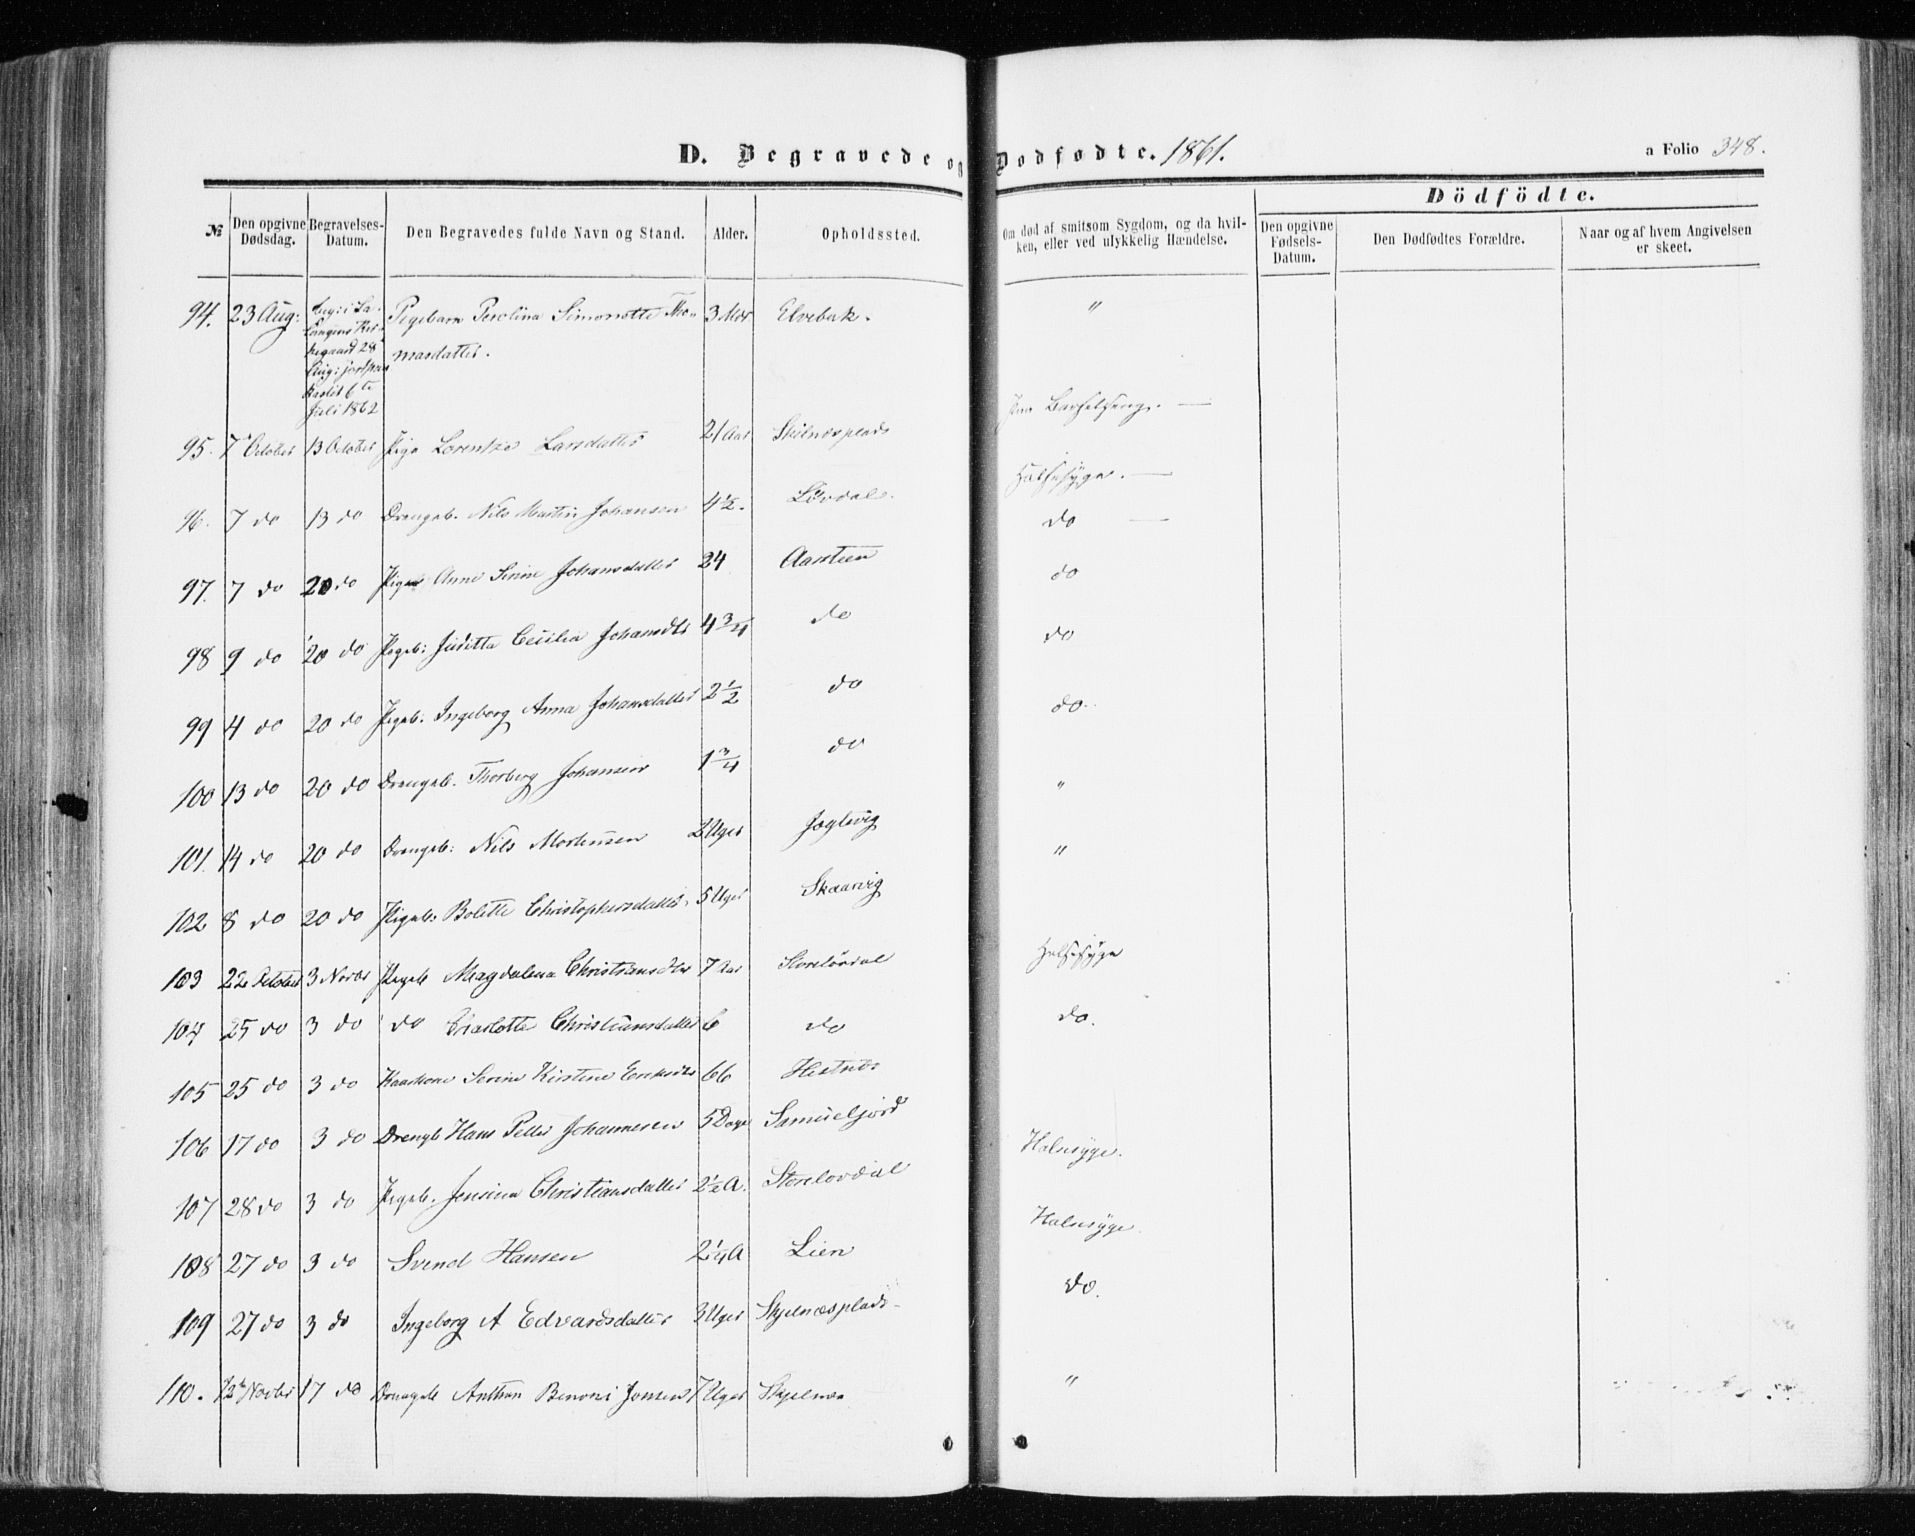 D. Begravede og Dødfødte. 1861. a Folio 348.
Dödfödte.
№ Den opgivne Dødsdag. Begravelses-Datum. Den Begravedes fulde Navn og Stand. Alder. Opholdssted. Om død af smitsom Sygdom, og da hvilken, eller ved ulykkelig Hændelse. Den opgivne Fødsels-Datum. Den Dødfødtes Forældre. Naar og af hvem Angivelsen er skeet.
94. 23 Aug: 28 Aug: 6te Juli 1862 Pigebarn Simonette Thomasdatter. 3 Mdr Elvebak. "
95. 7de October 13 October Pige Lorentze Larsdatter 21 Aar Skilnesplads paa Barselseng. —
96. 7 do 13 do Drengeb. Nils Martin Johansen 4½. Lövdal. Halssyge. —
97. 7 do 20 do Pige Anne Serine Johansdatter 24 Aarsteen do —
98 9 do 20 do Pigeb: Juditta Cecilia Johansdtr 4¾ do do
99 4 do 20 do Pigeb. Ingeborg Anna Johansdatter 2½ do do
100 13 do 20 do Drengeb. Thorberg Johansen 1¾ do do.
101. 14 do 20 do Drengeb: Nils Mortensen 2 Uger Jøglevig "
102 8 do 20 do Pigeb. Bolette Christophersdatter. 5 Uger Skaarvig "
103 22 October 3 Novbr Pigeb Magdalena Christiansdtr 7 Aar Storelövdal Halssyge
104 25 do 3 do do Charlotte Christiansdatter 6 do do.
105 25 do 3 do Kaarkone Serine Kirstine Eriksdtr 66 Hestnes
106 17 do 3 do Drengb Hans Petter Johannesen 5 Dage Samueljord
107 28 do 3 do Pigeb. Jensina Christiansdatter 2½ A. Storelovdal Halssyge.
108 27 do 3 do Svend Hansen 2¼ A Lien Halssyge.
109 27 do 3 do Ingeborg A Edvardsdatter 3 Uger Skjelnesplads do.
110. 12te Novbr 17 do Drengeb Anthon Benoni Jonsen 7 Uger Skjelnes "